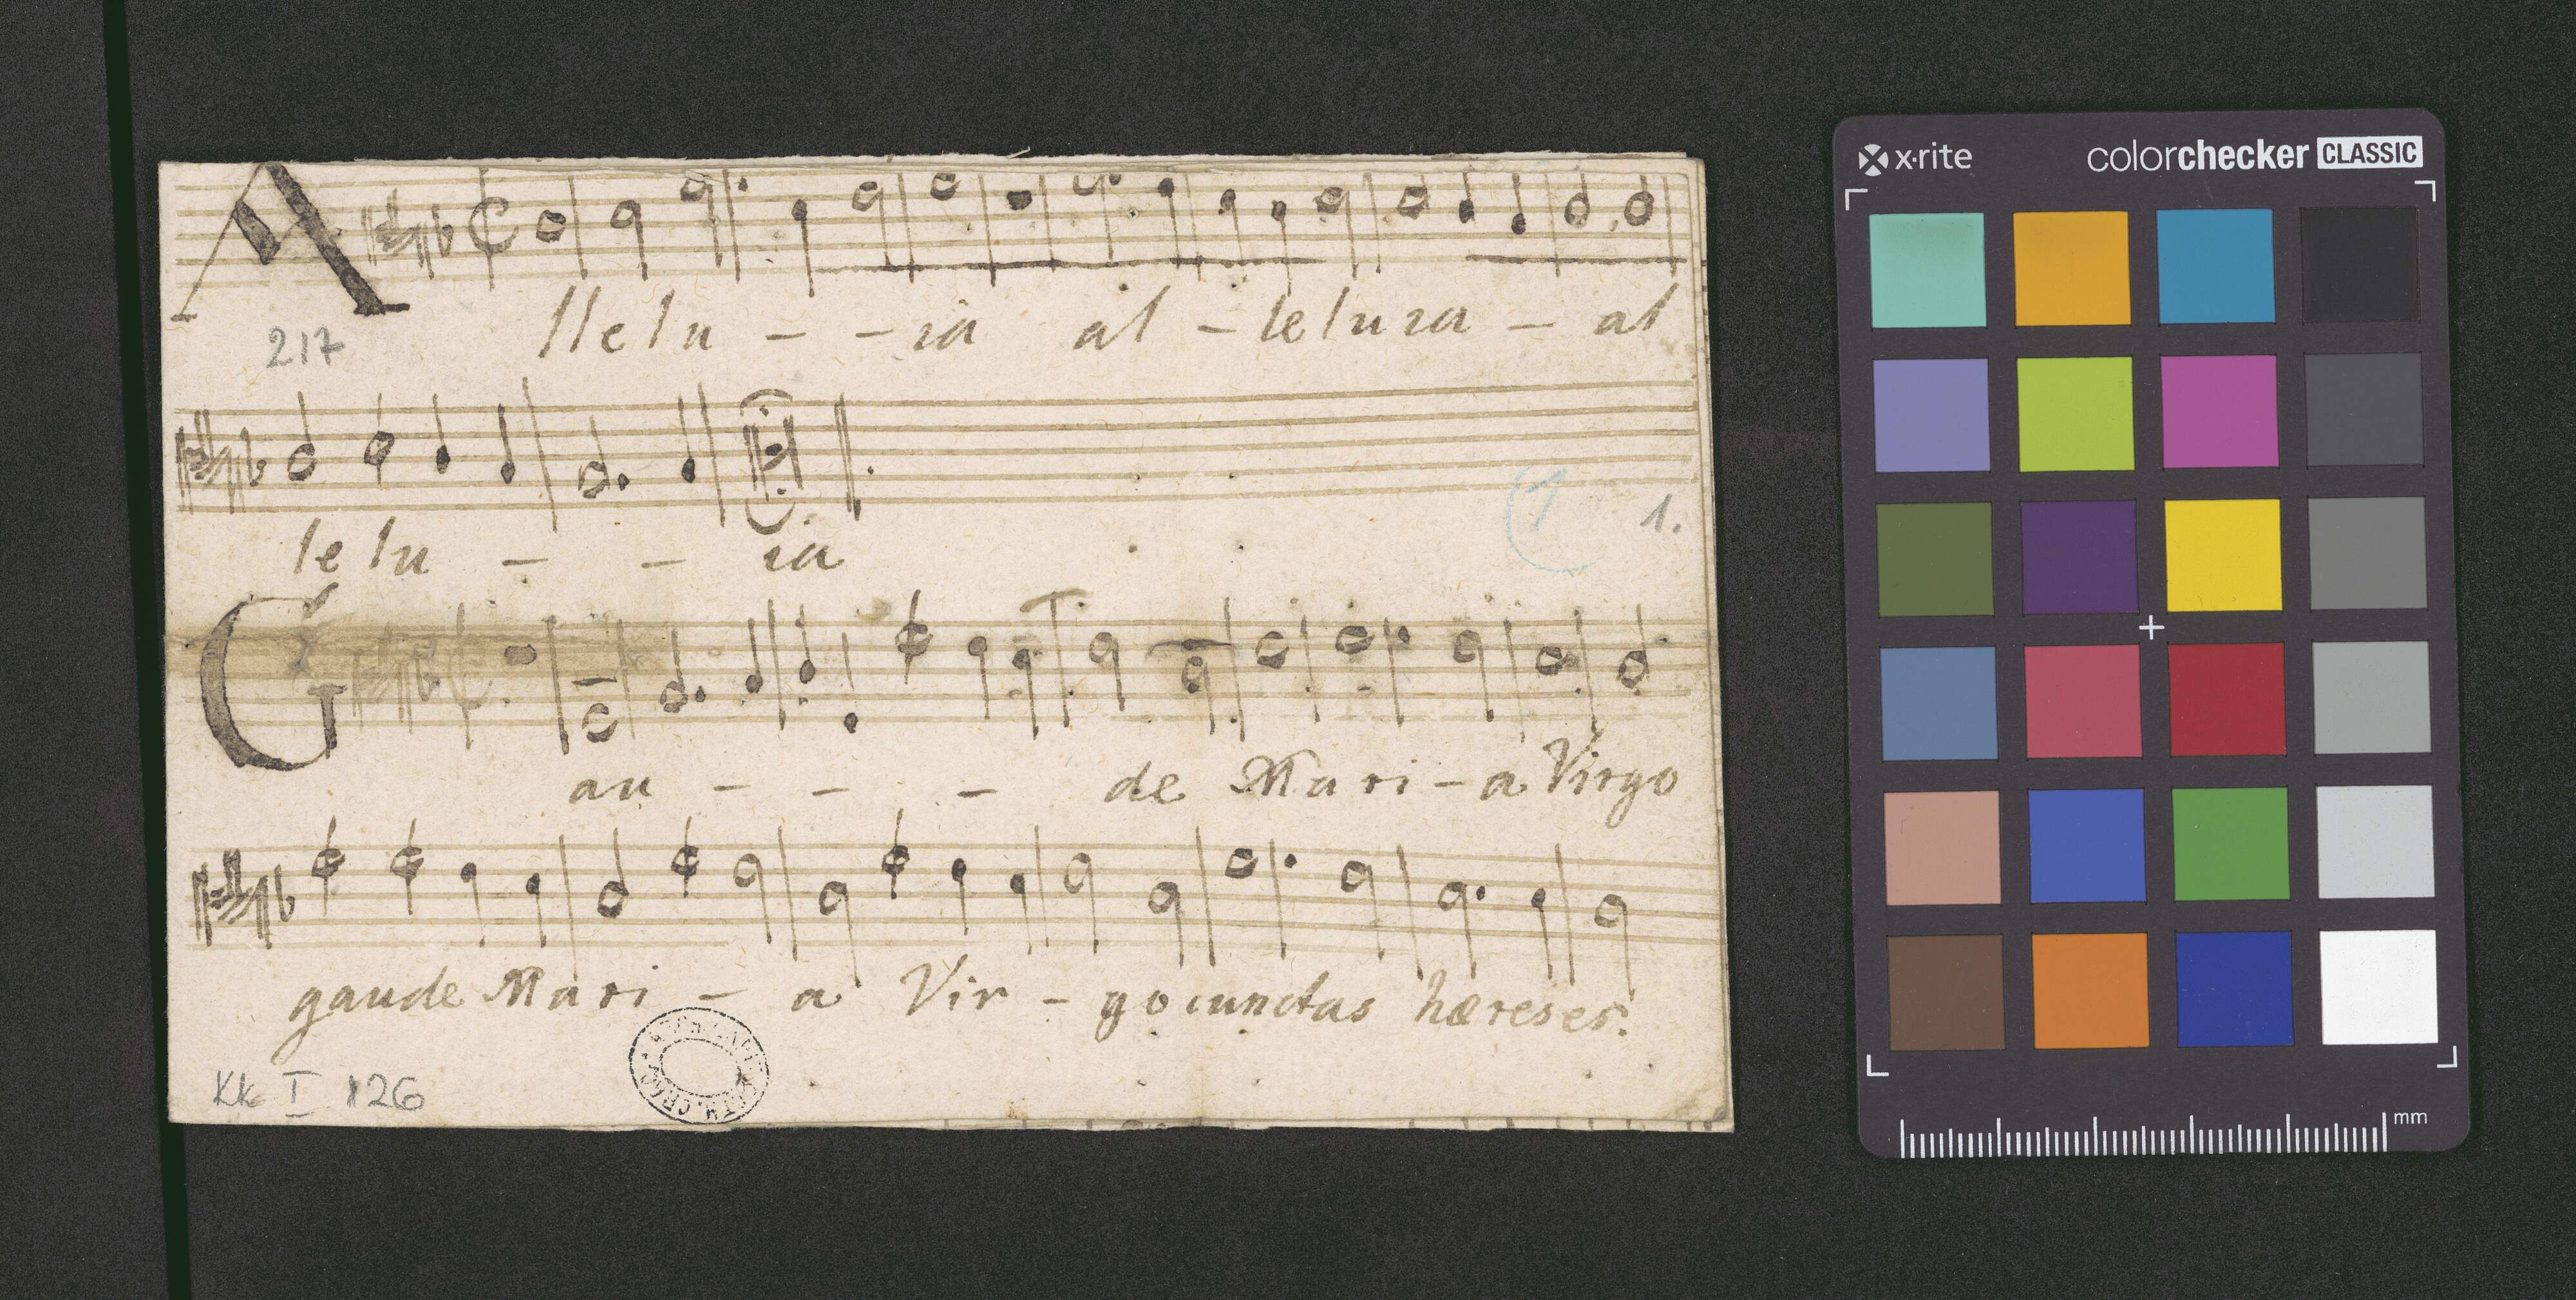 A llelu - - ia al - leluia - al
217
lelu - - ia
1 1.
G au - - - de Mari - a Virgo
gaude Mari - a Vir - go cunctas hæreses:
Kk I 126
x·rite colorchecker CLASSIC
mm